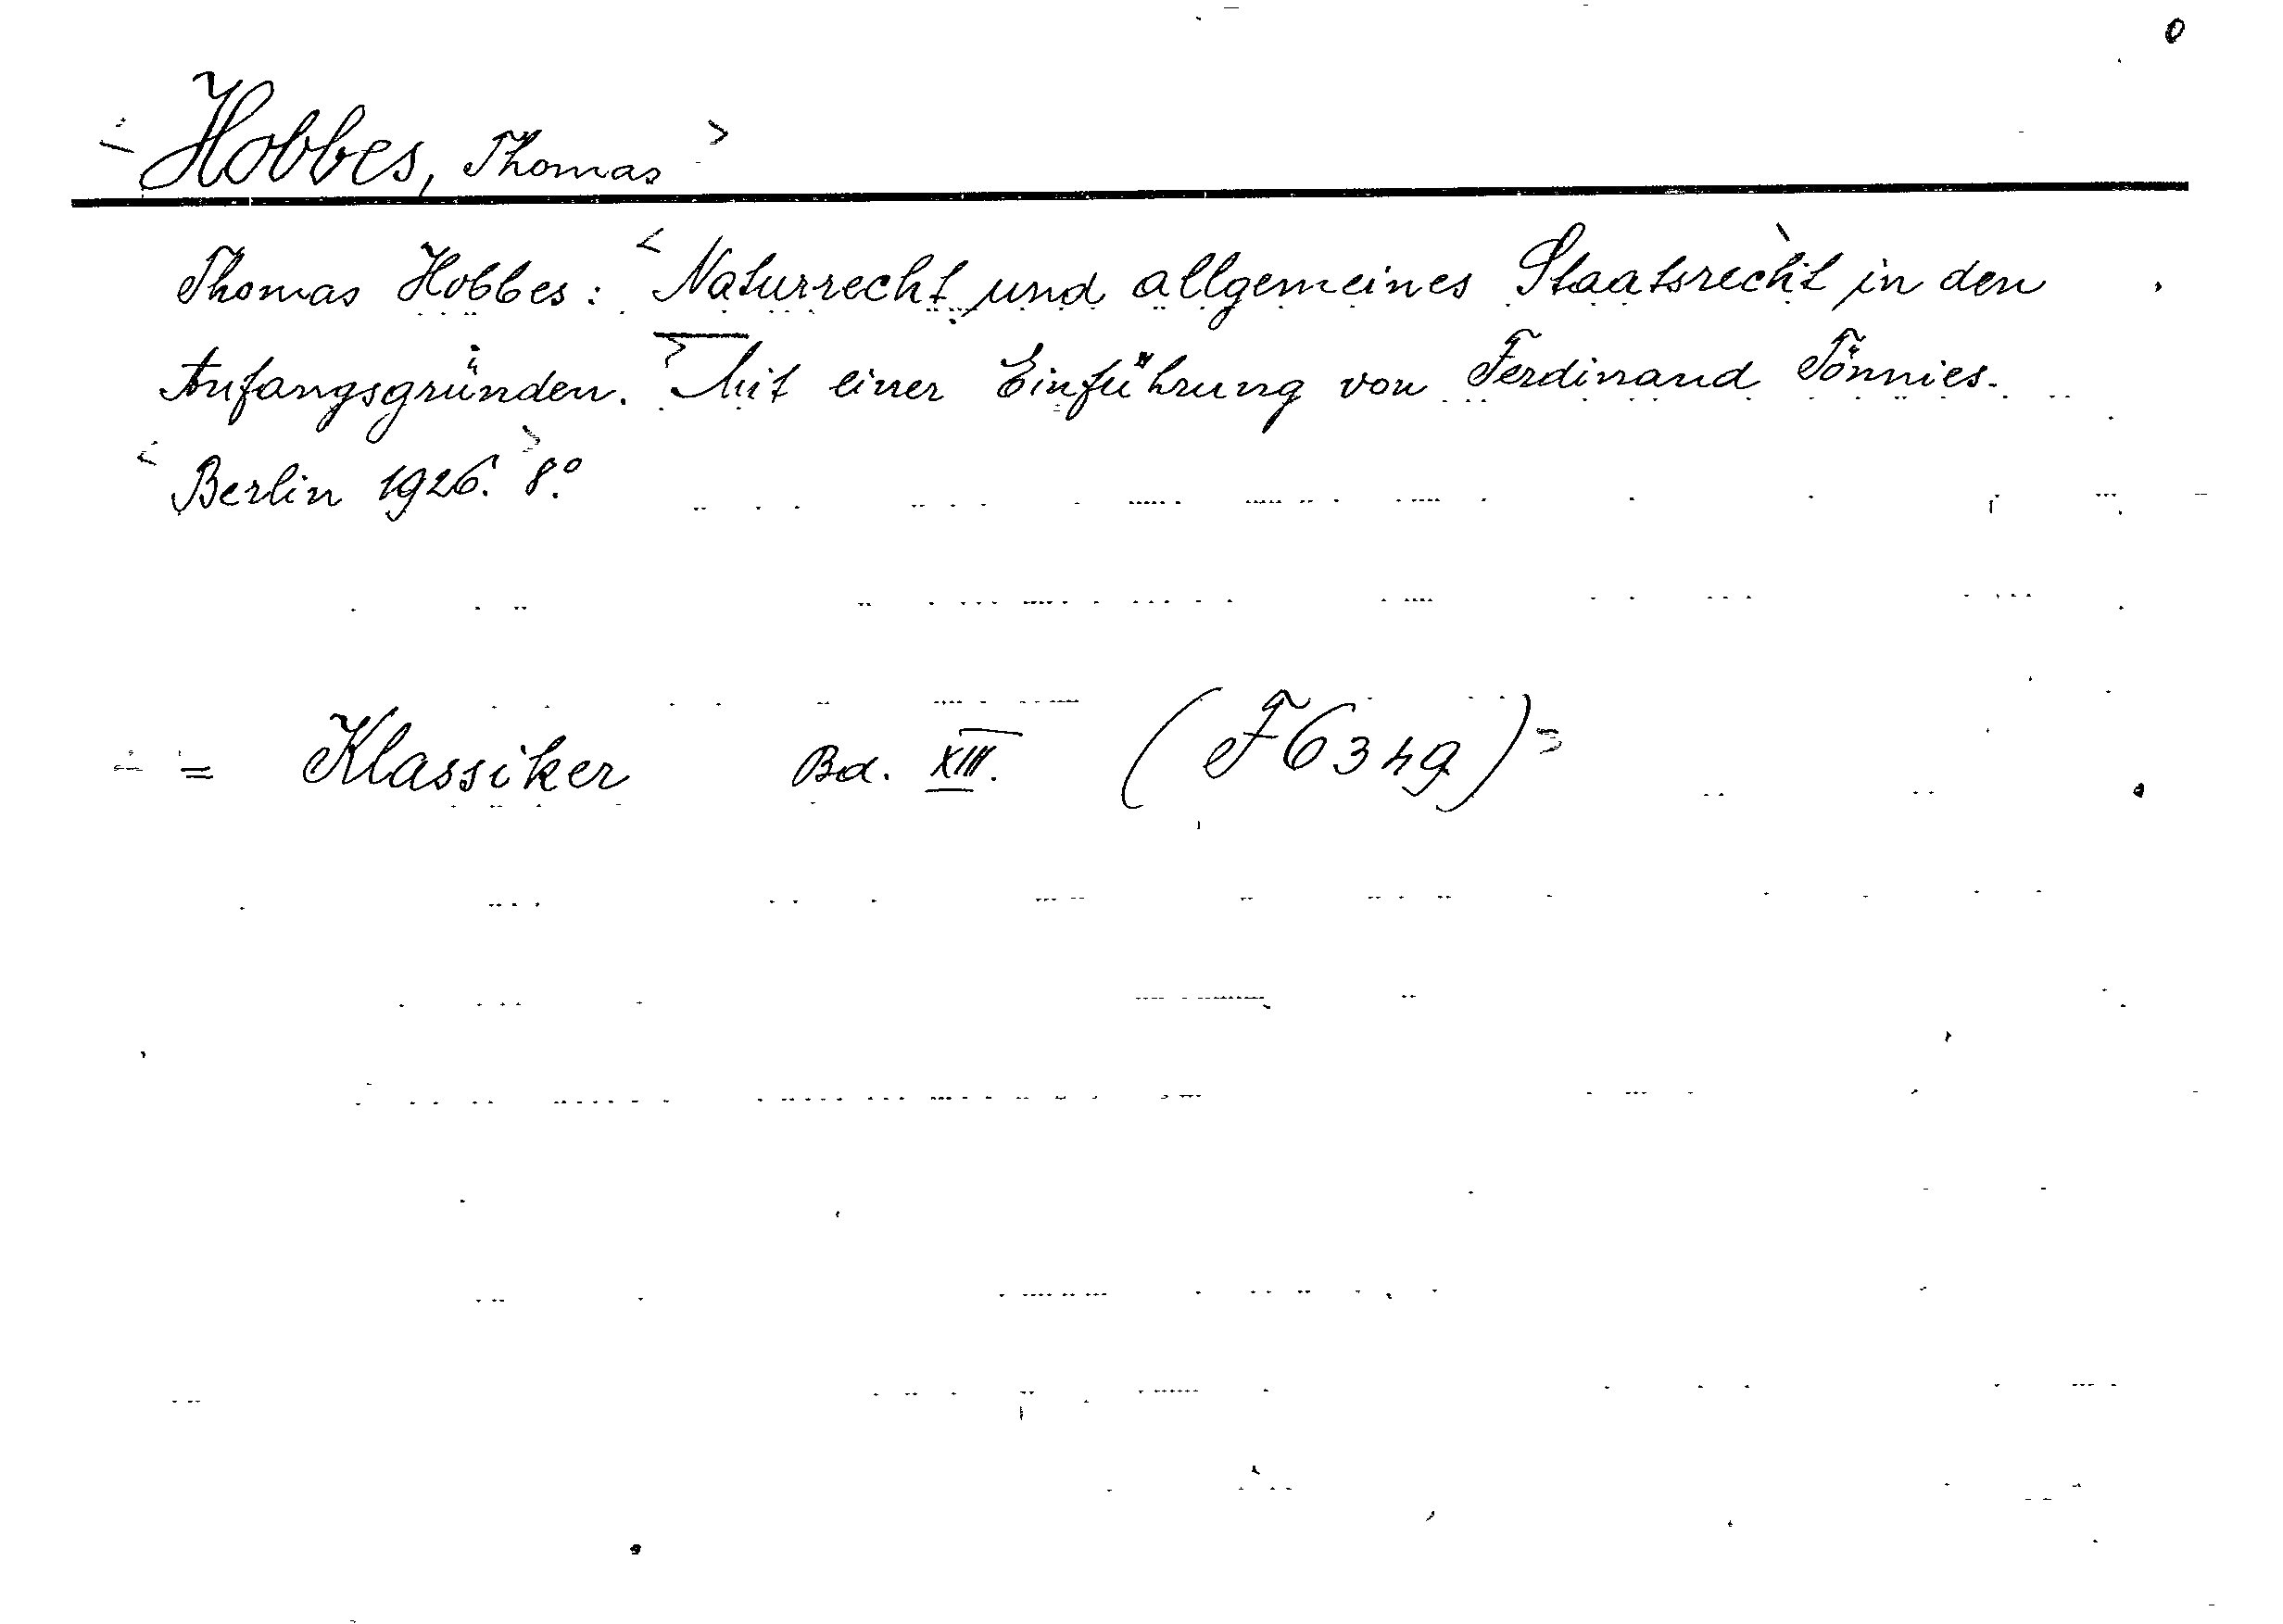 < Hobbes, Thomas >
Thomas Hobbes: < Naturrecht und allgemeines Staatsrecht in den
Anfangsgründen. > Mit einer Einführung von Ferdinand Tönnies.
< Berlin 1926. > 8º.
= Klassiker Bd. XIII. (F63hg) >